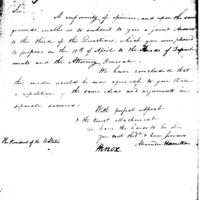 Sir
A conformity of opinion, and upon the same
grounds, enables us to submit to you a joint Answer
to the third of the Questions, which you were pleased
to propose on the 18th of April to the Heads of Depart
ments and the Attorney General.
We have concluded that
this mode would be more agreeable to you than
a repetition of the same ideas and arguments in
separate answers.
With perfect respect
& the truest attachment
We have the honor to be Sir
your most obed &
The President of the UStates
Alexander Hamilton
HKnox